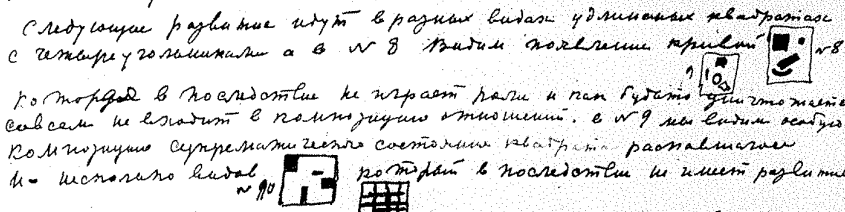 Следующие развитие идут в разных видах удлиненых квадратах
с четыреугольниками а в № 8 видим появление кривой № 8
которая в последствие не играет роли и как будто уничтожается
совсем не входит в композицию отношений. в № 9 мы видим особую
композицию супрематического состояние квадрата распавшагося
и несколько видов № 10 который в последствие не имеет развитие